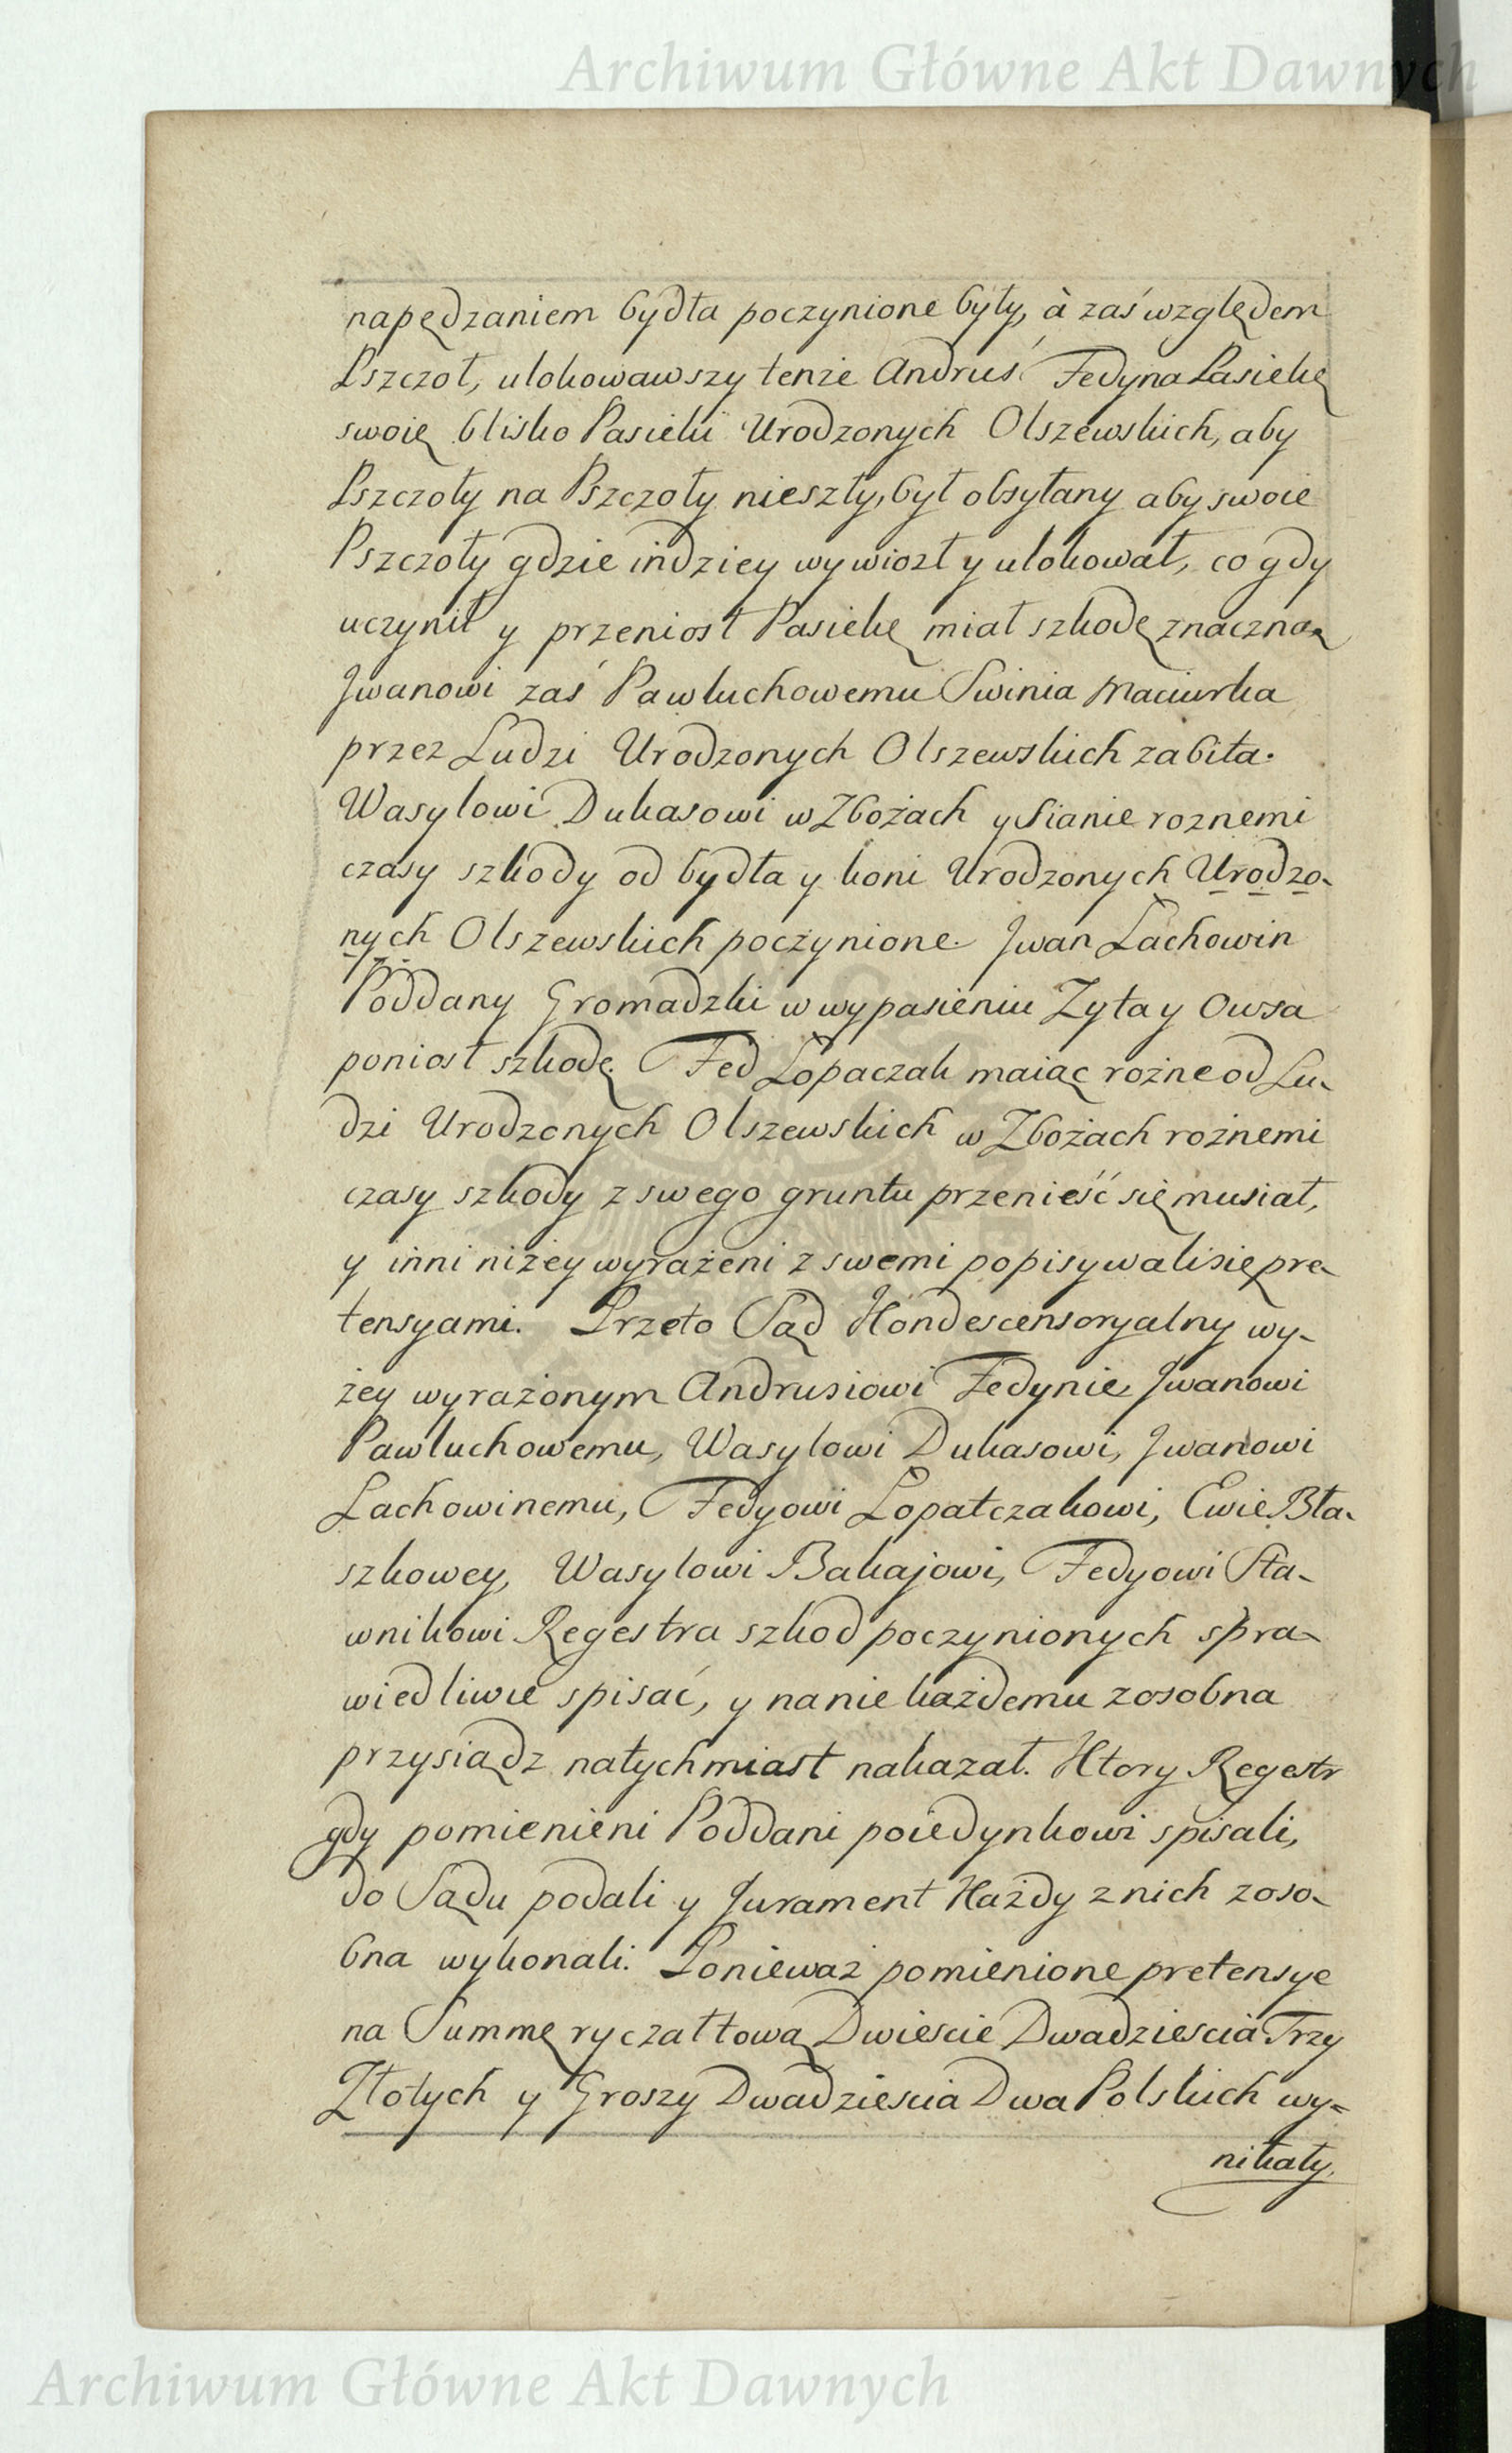 Archiwum Główne Akt Dawnych
napędzaniem bydła poczynione były, à zaś względem
Pszczoł, ulokowawszy tenże Andruś Fedyna Pasiekę
swoię blisko Pasieki Urodzonych Olszewskich, aby
Pszczoły na Pszczoły nieszły, był obsyłany aby swoie
Pszczoły gdzie indziey wywiozł y ulokował, co gdy
uczynił y przeniosł Pasiekę miał szkodę znaczną
Jwanowi zaś Pawluchowemu Swinia Maciurka
przez Ludzi Urodzonych Olszewskich zabita.
Wasylowi Dukasowi w Zbożach y Sianie roznemi
czasy szkody od bydła y koni Urodzonych Urodzo-
nych Olszewskich poczynione. Jwan Lachowin
Poddany Gromadzki w wypasieniu Zyta y Owsa
poniosł szkodę. Fed Łopaczak maiąc rożne od Lu-
dzi Urodzonych Olszewskich w Zbożach rożnemi
czasy szkody z swego gruntu przenieść się musiał,
y inni niżey wyrażeni z swemi popisywali się pre-
tensyami. Przeto Sąd Kondescensoryalny wy-
żey wyrażonym Andrusiowi Fedynie, Jwanowi
Pawluchowemu, Wasylowi Dukasowi, Jwanowi
Lachowinemu, Fedyowi Łopatczakowi, Ewie Bła-
szkowey, Wasylowi Bakajowi, Fedyowi Sta-
wnikowi Regestra szkod poczynionych spra-
wiedliwie spisać, y na nie każdemu zosobna
przysiądz natychmiast nakazał. Ktory Regestr
gdy pomienieni Poddani poiedynkowi spisali,
do Sądu podali y Jurament Każdy z nich zoso-
bna wykonali. Ponieważ pomienione pretensye
na Summę ryczałtową Dwiescie Dwadziescia Trzy
Złotych y Groszy Dwadziescia Dwa Polskich wy-
nikały.
Archiwum Główne Akt Dawnych